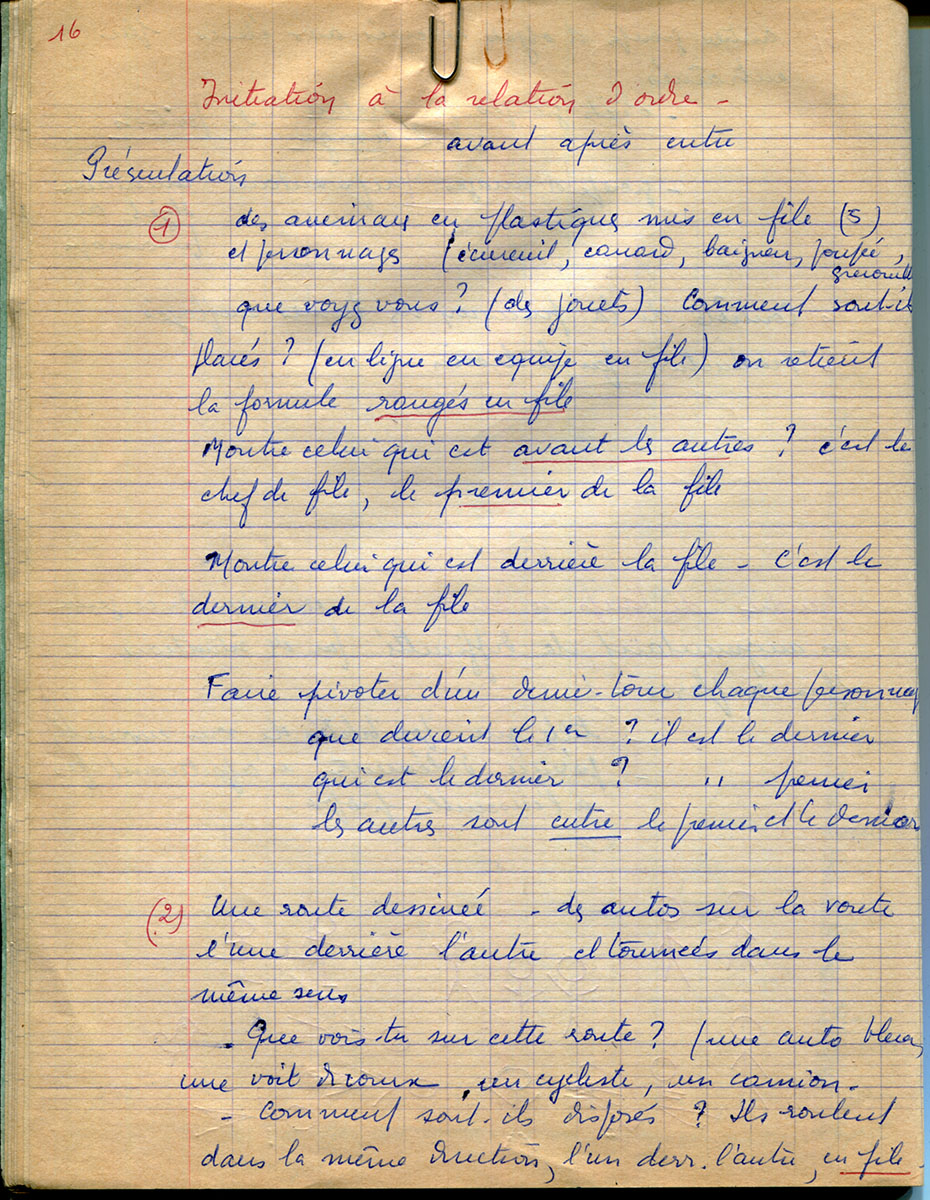 16
Initiation à la relation d'ordre -
avant après entre
Présentation
① des animaux en plastique mis en file (5)
et personnages (écureuil, canard, baigneur, poupée,
grenouille
que voyez vous ? (des jouets) Comment sont-ils
placés ? (en ligne en equipe en file) on retient
la formule rangés en file
Montre celui qui est avant les autres ? c'est le
chef de file, le premier de la file
Montre celui qui est derrière la file - c'est le
dernier de la file
Faire pivoter d'un demi-tour chaque personnage
que devient le 1er ? il est le dernier
qui est le dernier ? " premier
les autres sont entre le premier et le dernier
(2) Une route dessinée - des autos sur la route
l'une derrière l'autre et tournées dans le
même sens
- Que vois-tu sur cette route ? (une auto bleue,
une voit , un cycliste, un camion -
- Comment sont-ils disposés ? Ils roulent
dans la même direction, l'un derr. l'autre, en file -